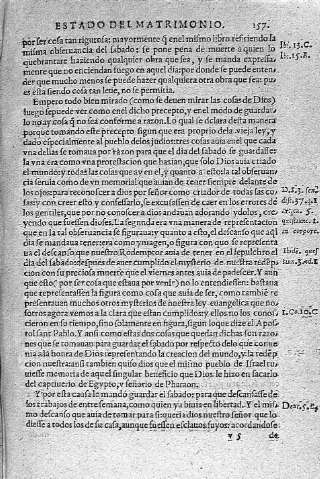 ESTADO DEL MATRIMONIO. 157.
por ser cosa tan rigurosa: mayormente q̃ en el mismo libro refiriendo la
misma obseruancia del sabado: se pone pena de muerte a quien lo
quebrantare haziendo qualquier obra que sea, y se manda expressa
mente que no enciendan fuego en aquel dia: por donde se puede enten
der que mucho menos se puede hazer qualquiera otra obra que sea: pu
es esta siendo cosa tan leue, no se permitia.
Empero todo bien mirado (como se deuen mirar las cosas de Dios)
luego se puede ver como en el dicho precepto, y en el modo de guardar
lo no ay cosa q̃ no sea conforme a razon. Lo qual se declara desta manera
porque tomando este precepto segun que era proprio de la vieja ley, y
dado especialmente al pueblo delos judios: tres cosas auia en el que cada
vna dellas se tomaua por razon para que el dia del sabado se guardasse:
la vna era como vna protestacion que hazian, que solo Dios auia criado
el mundo: y todas las cosas que ay en el, y quanto a esto la tal obseruan
cia seruia como de vn memorial que auian de tener siempre delante de
los ojos para reconocer a dios por señor como criador de todas las co
sas: y con creer esto y confessarlo, se escusassen de caer en los errores de
los gentiles, que por no conoscer a dios andauan adorando ydolos, cre
yendo que fuessen dioses. La segunda era vna manera de representacion
que en la tal obseruancia se figuraua: y quanto a esto, el descanso que aq̃l
dia se mandaua tener era como ymagen, o figura con que se representa
ua el descanso que nuestro Redemptor auia de tener en el sepulchro el
dia del sabado despues de auer cumplido el mysterio de nuestra redẽp
cion con su preciosa muerte que el viernes antes auia de padescer. Y aun
que esto (por ser cosa que estaua por venir) no lo entendiessen: bastaua
que representassen la figura como cosa que auia de ser, como tambiẽ re
presentauan muchos otros mysterios de nuestra ley euangelica que no
sotros agora vemos a la clara que estan cumplidos: y ellos no los conos
cieron en su tiempo, sino solamente en figura, segun lo que dize el Apos
tol sant Pablo. Y ansi como estas dos cosas que estan dichas son razo
nes que se tomauan para guardar el sabado por respecto de lo que conue
nia ala honra de Dios representando la creacion del mundo, y la redẽp
cion nuestra: ansi tambien quiso dios que el mismo pueblo de Israel tu
uiesse memoria de aquel singular beneficio que Dios le hizo en sacarlo
del captiuerio de Egypto, y señorio de Pharaon.
Y por esta causa le mando guardar el sabado: para que descansasse de
los trabajos de entre semana, como quien ya biuia en libertad. Y el mis
mo descanso que auia de tomar para si queria dios nuestro señor que lo
diesse a todos los de su casa, aunque fuessen esclauos suyos: acordandose
y 5 de